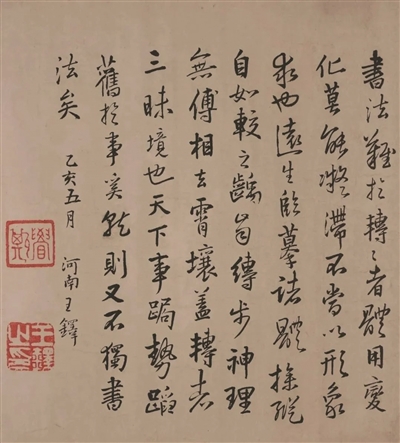 書法難於轉〻者體用變
化莫能凝滯不當以形象
求也遠生臨摹諸體操縱
自如較之縛步神理
無傅相去霄壤蓋轉者
三昧境也天下事跼勢蹈
舊於事奚就則又不獨書
法矣 乙亥五月 河南王鐸
王鐸之印